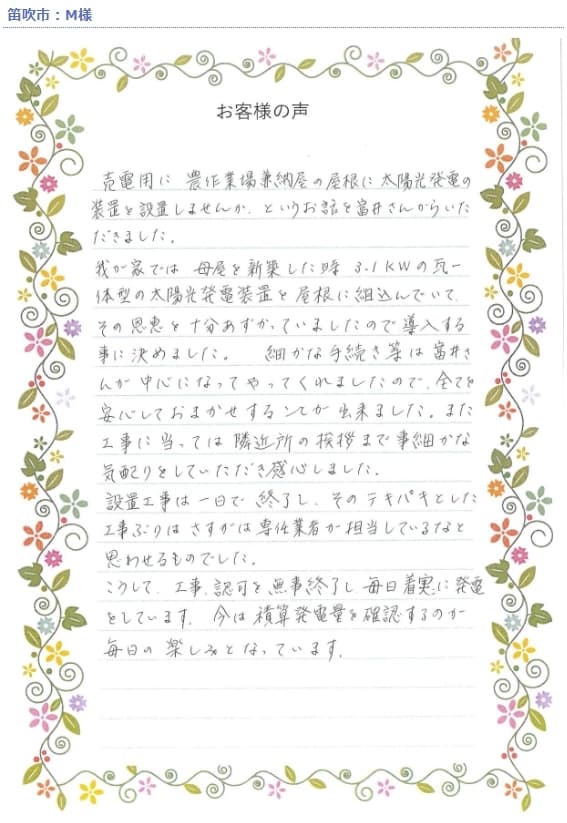 笛吹市：M様
お客様の声
売電用に 農作業場兼納屋の屋根に太陽光発電の
装置を設置しませんか、というお話を富井さんからいた
だきました。
我が家では 母屋を新築した時 3.1KWの瓦一
体型の太陽光発電装置を屋根に組込んでいて、
その恩恵を十分あずかっていましたので導入する
事に決めました。 細かな手続き等は富井さ
んが中心になってやってくれましたので、全てを
安心しておまかせすることが出来ました。また
工事に当っては 隣近所の挨拶まで事細かな
気配りをしていただき感心しました。
設置工事は一日で終了し、そのテキパキとした
工事ぶりはさすがは専任業者が担当しているなと
思わせるものでした。
こうして、工事、認可を無事終了し毎日着実に発電
をしています。今は積算発電量を確認するのが
毎日の楽しみとなっています。